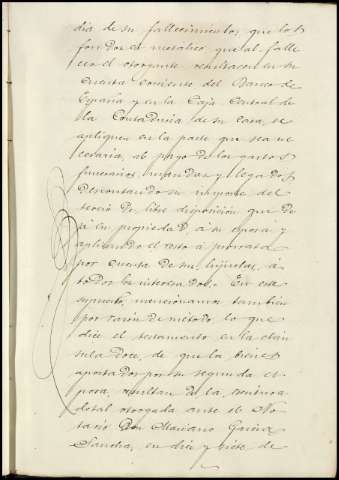 dia de su fallecimiento, que los
fondos en metálico que al falle
cer el otorgante, resultaren en su
cuenta corriente del Banco de
España y en la Caja Central de
la Contaduría de su casa, se
apliquen en la parte que sea ne
cesaria, al pago de los gastos
funerarios, mandas y legados,
descontando su importe del
tercio de libre disposición que de
ja en propiedad á su esposa y
aplicando el resto á prorrata
por cuenta de sus hijuelas, á
todos los interesados. En este
supuesto, mencionamos también
por razón de método, lo que
dice el testamento en la cláu
sula doce, de que los bienes
aportados por su segunda es
posa, resultan de la escritura
dotal otorgada ante el No
tario Don Mariano García
Sancha, en diez y siete de